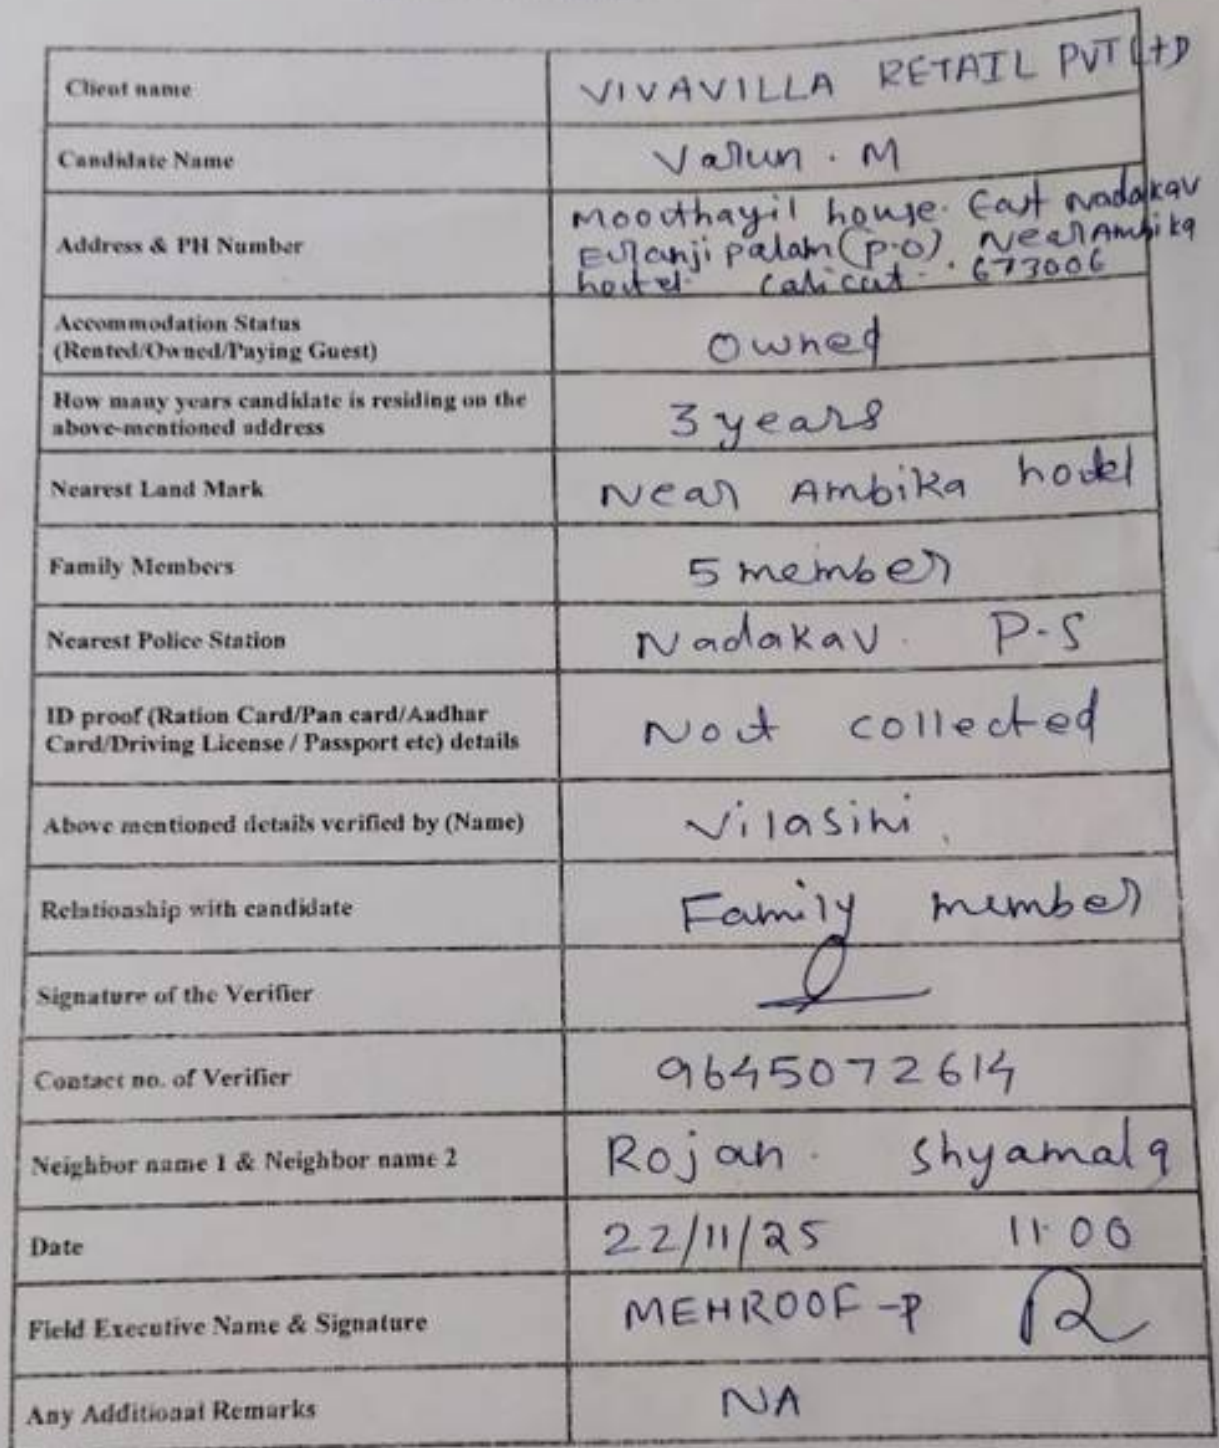 Client name VIVAVILLA RETAIL PVT LTD
Candidate Name Varun . M
Address & PH Number Moothayil house. East Nadakav
Eranjipalam (P.O) Near Ambika
hotel. Calicut. . 673006
Accommodation Status
(Rented/Owned/Paying Guest) Owned
How many years candidate is residing on the
above-mentioned address 3 years
Nearest Land Mark Near Ambika hotel
Family Members 5 member
Nearest Police Station Nadakav. P.S
ID proof (Ration Card/Pan card/Aadhar
Card/Driving License / Passport etc) details Not collected
Above mentioned details verified by (Name) Vilasini
Relationship with candidate Family member
Signature of the Verifier
Contact no. of Verifier 9645072614
Neighbor name 1 & Neighbor name 2 Rojan. Shyamala
Date 22/11/25 11.00
Field Executive Name & Signature MEHROOF-P
Any Additional Remarks NA